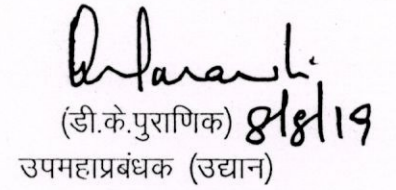 (डी.के.पुराणिक) 8/8/19
उपमहाप्रबंधक (उद्यान)